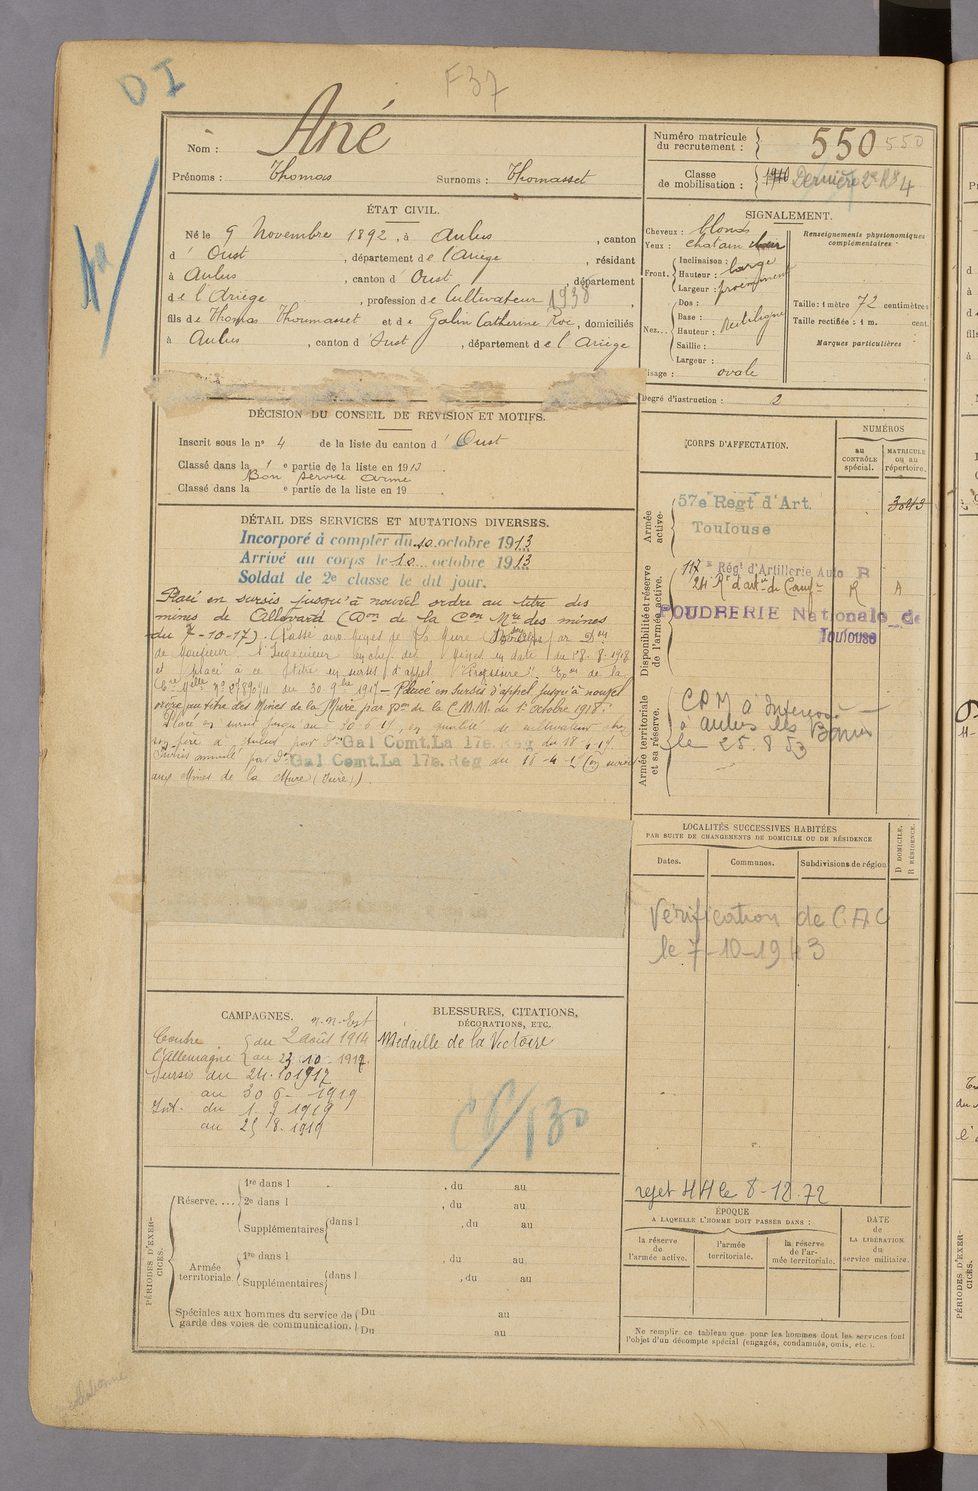 D I
F 37
Nom : Ané
Prénoms : Thomas Surnoms : Thomasset
Numéro matricule du recrutement : 550 550
Classe de mobilisation : 1910 Dernière 2e Rs 4
ÉTAT CIVIL.
Né le 9 Novembre 1892, à Aulus, canton
d' Oust, département de l'Ariège, résidant
à Aulus, canton d' Oust, département
de l'Ariège, profession de Cultivateur 1938,
fils de Thomas Thoumasset et de Galin Catherine Roc, domiciliés
à Aulus, canton d' Oust, département de l'Ariège
SIGNALEMENT.
Cheveux : blonds
Yeux : chatain
Front. Inclinaison :
Hauteur : large
Largeur : proéminent
Nez... Dos :
Base :
Hauteur : Rectiligne
Saillie :
Largeur :
Visage : ovale
Renseignements physionomiques complémentaires :
Taille : 1 mètre 72 centimètres
Taille rectifiée : 1 m. cent.
Marques particulières
Degré d'instruction : 2
DÉCISION DU CONSEIL DE RÉVISION ET MOTIFS.
Inscrit sous le n° 4 de la liste du canton d' Oust
Classé dans la 1e partie de la liste en 1913
Bon service armé
Classé dans la e partie de la liste en 19 .
DÉTAIL DES SERVICES ET MUTATIONS DIVERSES.
Incorporé à compter du 10 octobre 1913
Arrivé au corps le 10 octobre 1913
Soldat de 2e classe le dit jour.
Placé en sursis jusqu'à nouvel ordre au titre des
mines de Allevard (Don de la Con Mre des mines
du 7-10-17). Passé aux Mines de La Mure par
de Monsieur l'Ingénieur en chef des Mines en date du 18.8.1918
et placé à ce titre en sursis d'appel
du 30 9bre 1917 - Placé en Sursis d'appel jusqu'à nouvel
ordre au titre des Mines de la Mure par Don de la C.M.M. du 1er Octobre 1918.
Placé en sursis jusqu'au 30-6-19, en qualité de cultivateur chez
son père à Aulus par Don Gal Comt.La 17e.Reg du 18-4-19
Sursis annulé par Don Gal Comt.La 17e.Reg du 18-4-19 (en sursis
aux Mines de la Mure (Isère)).
CORPS D'AFFECTATION.
NUMÉROS
au CONTRÔLE spécial.
MATRICULE ou au répertoire.
Armée active.
57e Regt d'Art.
Toulouse
3043
Disponibilité et réserve de l'armée active.
117e Régt d'Artillerie Auto R
24 Rt d'artie de Campne R A
POUDRERIE Nationale de
Toulouse
Armée territoriale et sa réserve.
CPM à Intéressé
à aulus les Bains
le 25.8.53
LOCALITÉS SUCCESSIVES HABITÉES
PAR SUITE DE CHANGEMENTS DE DOMICILE OU DE RÉSIDENCE
Dates. Communes. Subdivisions de région
D DOMICILE. R RÉSIDENCE.
Vérification de CAC
le 7-10-1943
rejet HH le 8-12-72
CAMPAGNES.
n.n. Est
Contre du 2 août 1914
l'Allemagne au 23 10 1917.
Sursis du 24.10 1917
au 30 6 - 1919
Int. du 1. 7 1919
au 25 8. 1919
BLESSURES, CITATIONS,
DÉCORATIONS, ETC.
Médaille de la Victoire
PÉRIODES D'EXERCICES.
Réserve....
1re dans l , du au
2e dans l , du au
Supplémentaires dans l , du au
Armée territoriale.
1re dans l , du au
Supplémentaires dans l , du au
Spéciales aux hommes du service de garde des voies de communication.
Du au
Du au
ÉPOQUE
A LAQUELLE L'HOMME DOIT PASSER DANS :
la réserve de l'armée active.
l'armée territoriale.
la réserve de l'armée territoriale.
DATE DE LA LIBÉRATION du service militaire.
Ne remplir ce tableau que pour les hommes dont les services font
l'objet d'un décompte spécial (engagés, condamnés, omis, etc.).